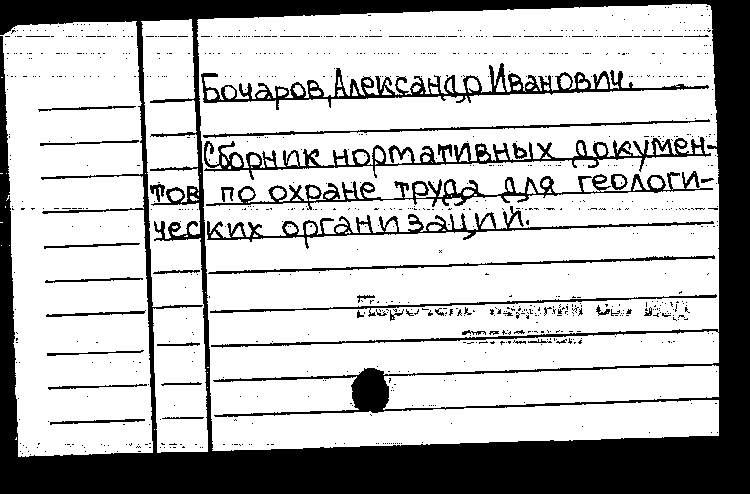 Бочаров, Александр Иванович.
Сборник нормативных докумен-
тов по охране труда для геологи-
ческих организаций.
Перечень изданий см. под